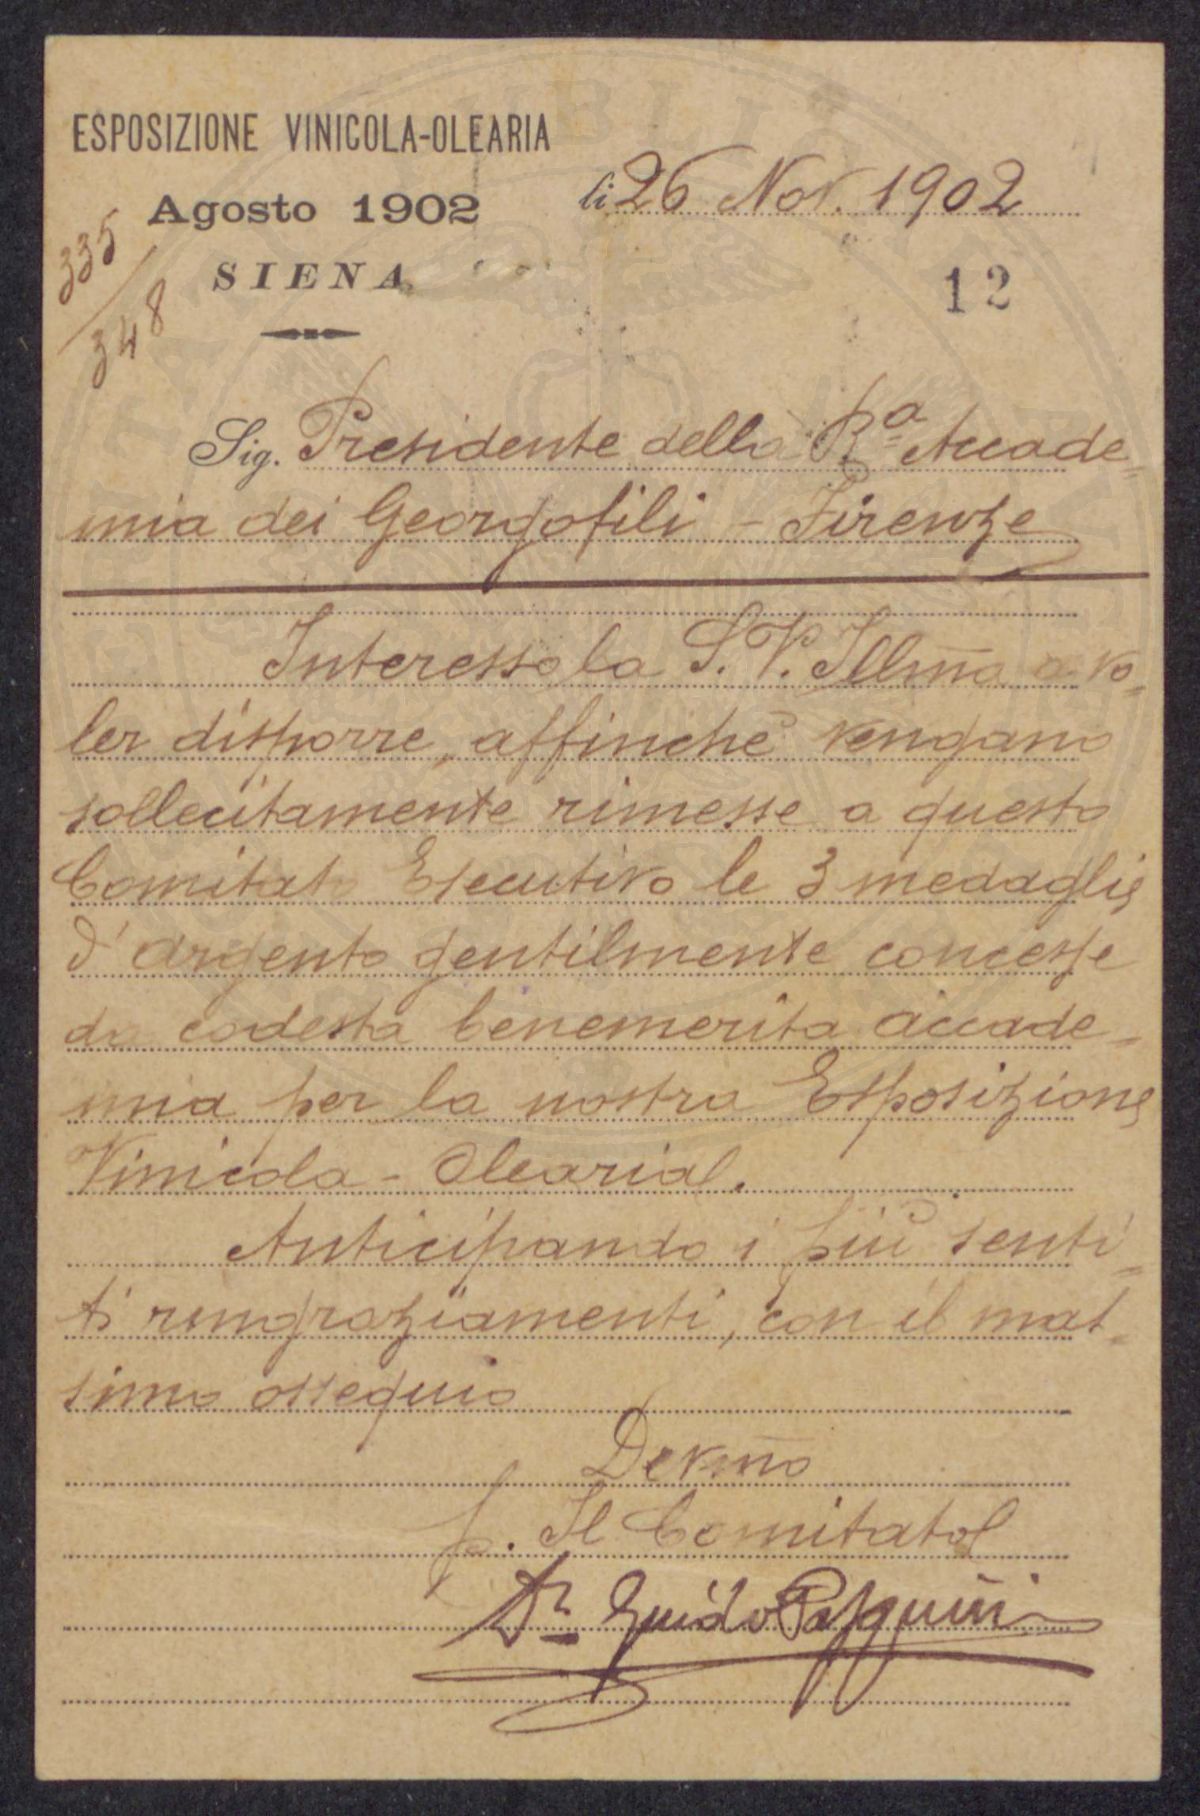 ESPOSIZIONE VINICOLA-OLEARIA
Agosto 1902
li 26 Nov. 1902
335/348
SIENA
12
Sig. Presidente della Rª Accade-
mia dei Georgofili - Firenze
Interesso la S. V. Illma a vo-
ler disporre, affinchè vengano
sollecitamente rimesse a questo
Comitato Esecutivo le 3 medaglie
d'argento gentilmente concesse
da codesta benemerita accade-
mia per la nostra Esposizione
Vinicola - Olearia.
Anticipando i più senti-
ti ringraziamenti, con il mas-
simo ossequio
Devmo
p. Il Comitato
Dr. Guido Pasquini